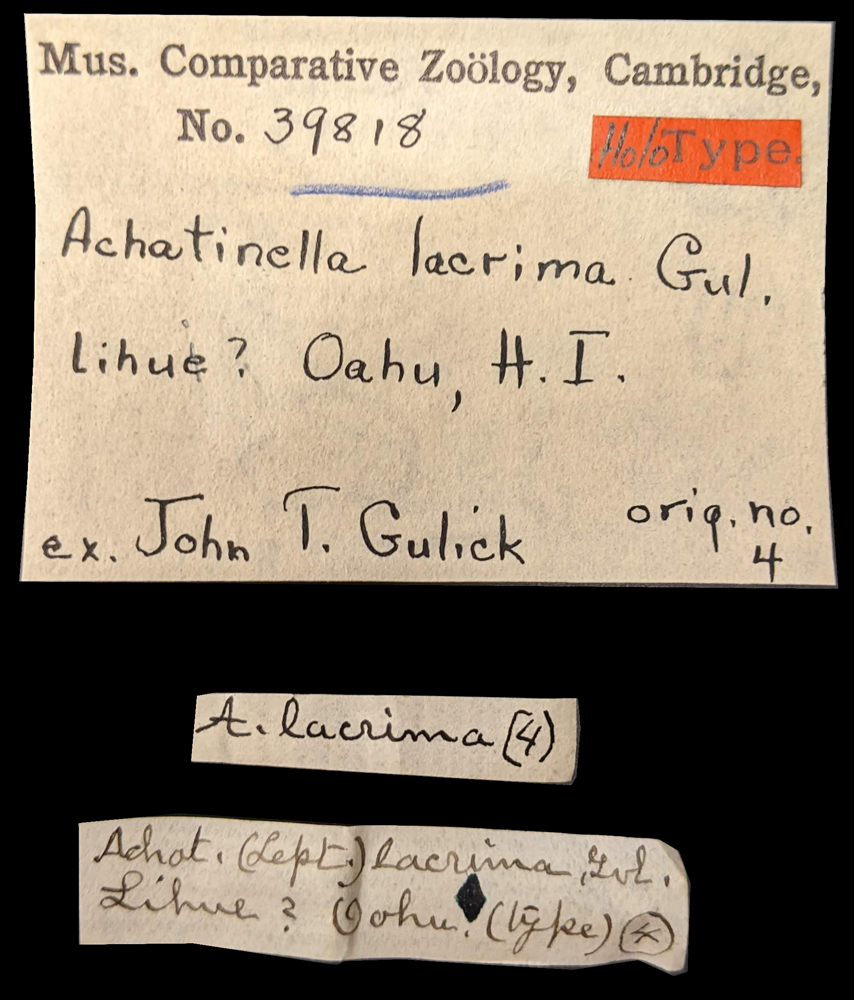 Mus. Comparative Zoölogy, Cambridge,
No. 39818
HoloType.
Achatinella lacrima Gul.
Lihue? Oahu, H. I.
ex. John T. Gulick
orig. no.
4
A. lacrima (4)
Achat. (Lept.) lacrima, Gul.
Lihue? Oahu. (type)